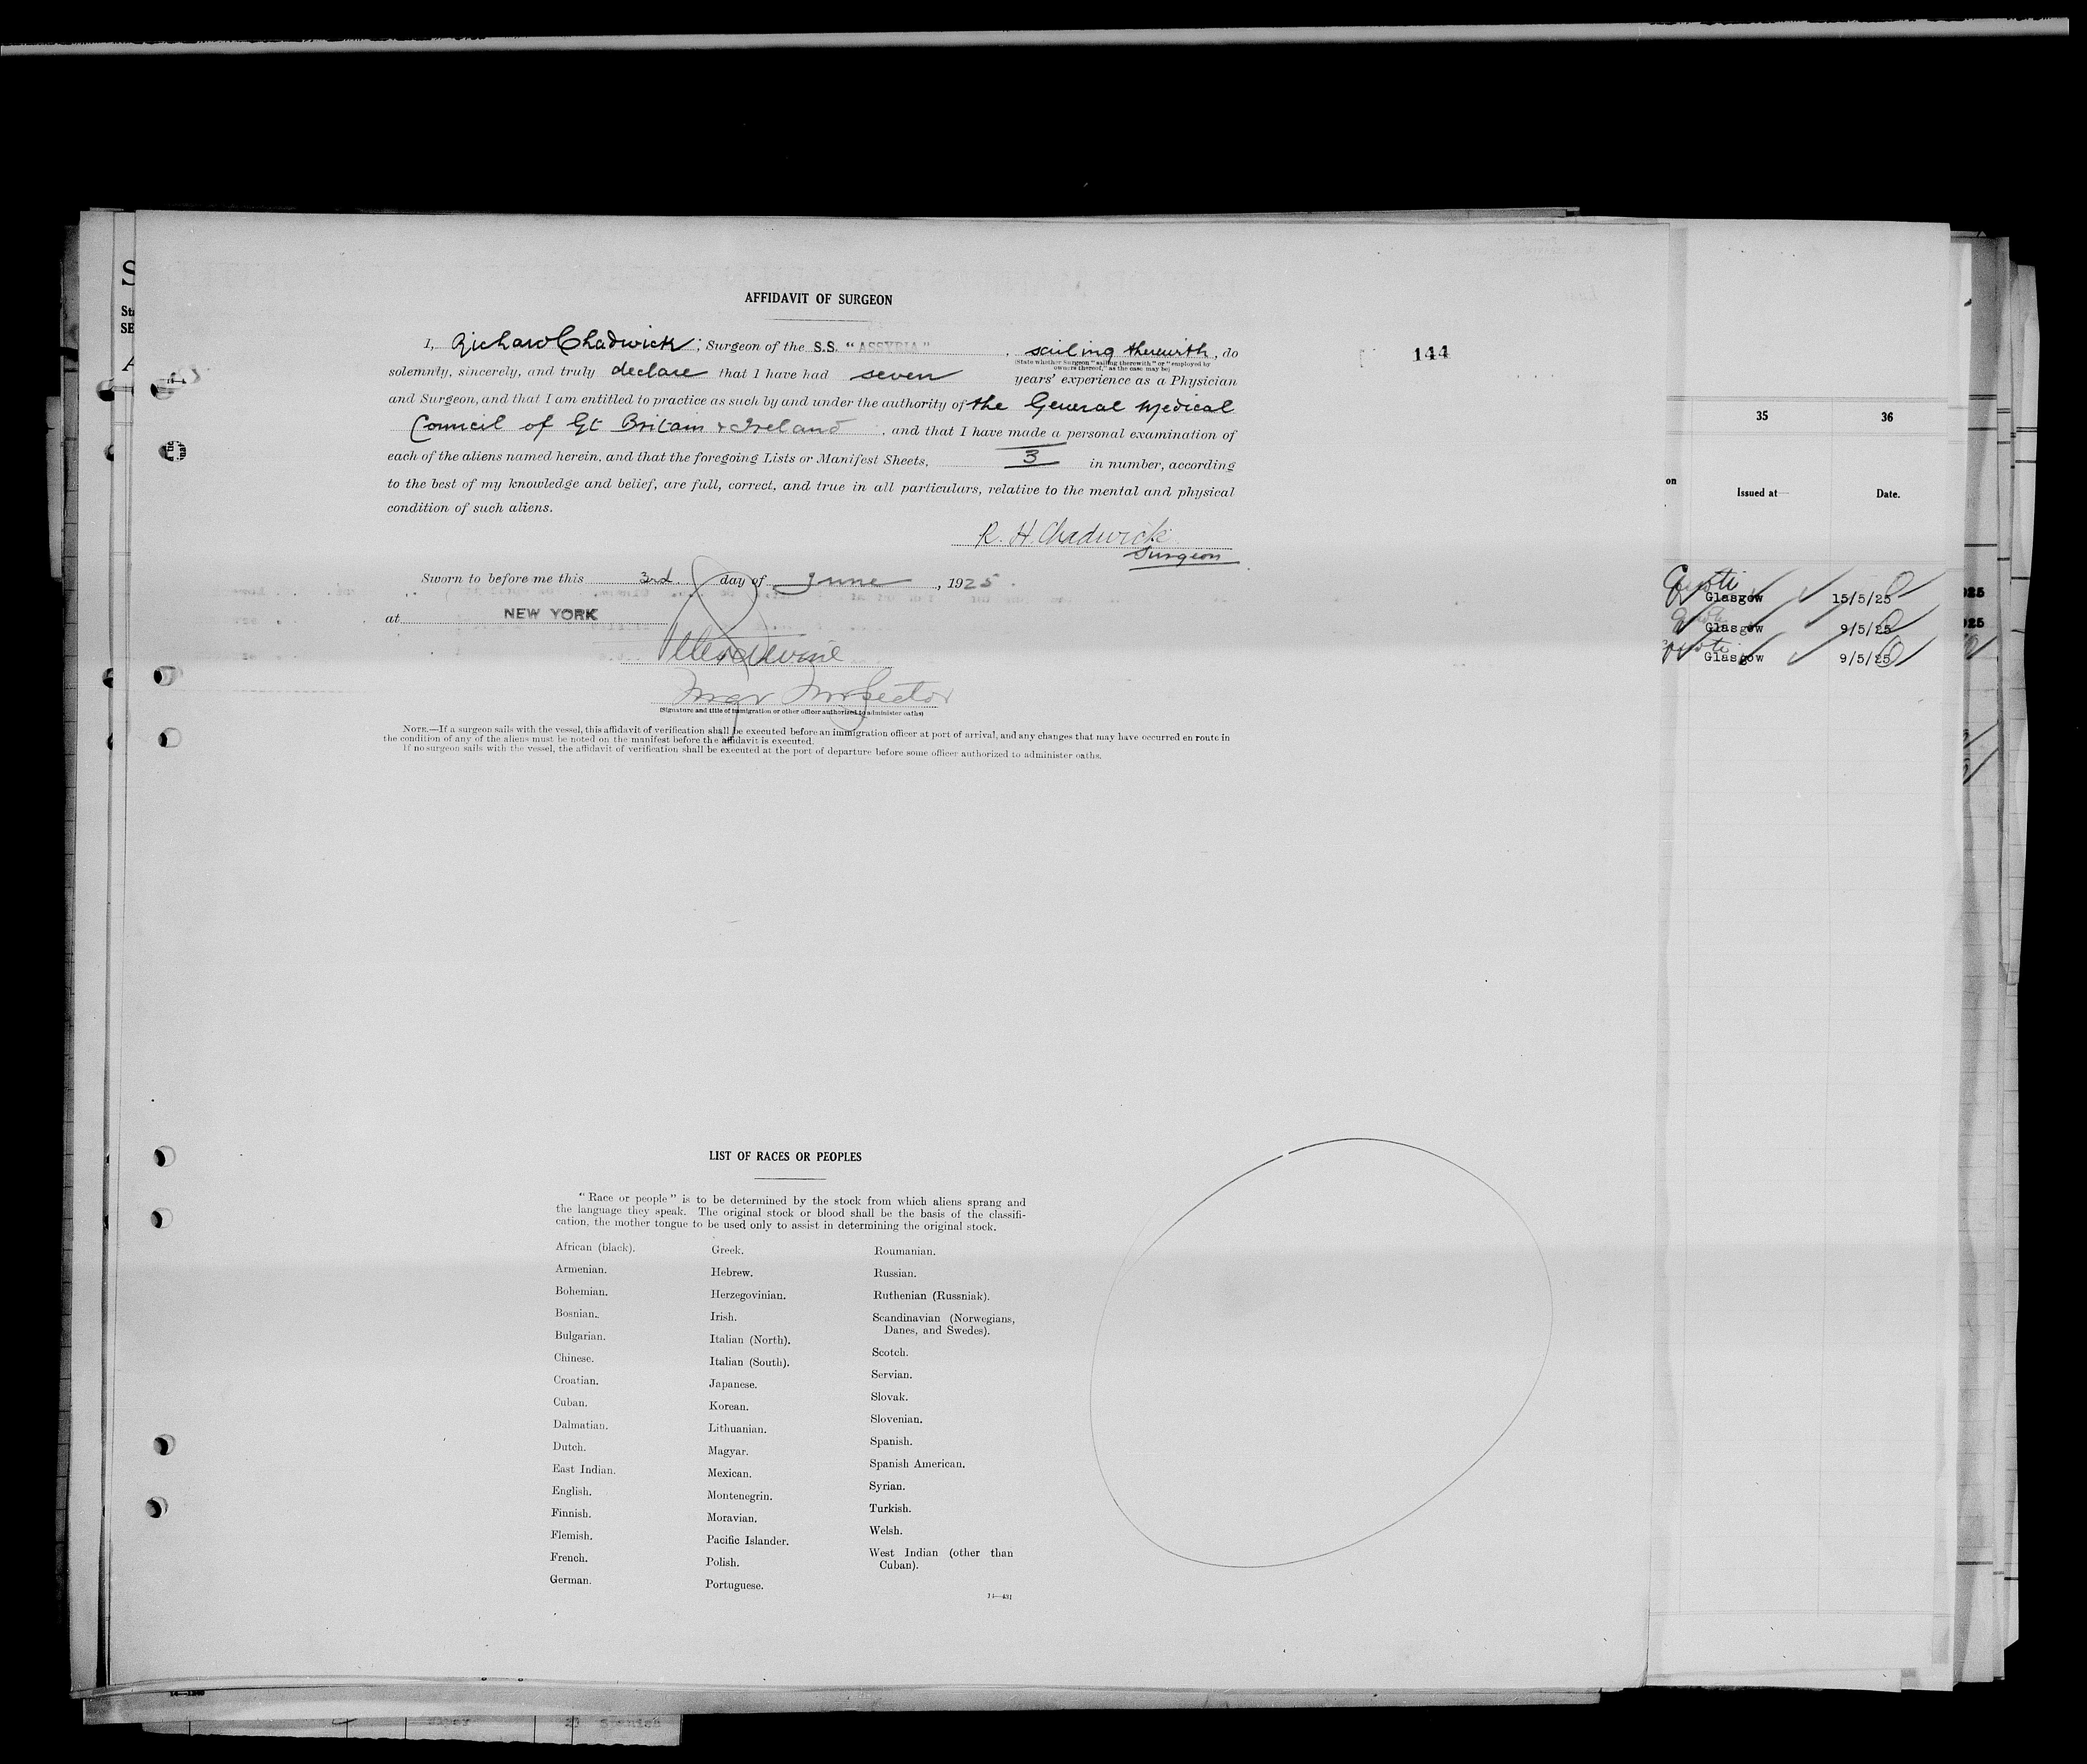 AFFIDAVIT OF SURGEON
I, Richard Chadwick, Surgeon of the S.S. "ASSYRIA", sailing therewith, do
(State whether Surgeon "sailing therewith" or "employed by
owners thereof," as the case may be)
solemnly, sincerely, and truly declare that I have had seven years' experience as a Physician
and Surgeon, and that I am entitled to practice as such by and under the authority of the General Medical
Council of Gt Britain & Ireland, and that I have made a personal examination of
each of the aliens named herein, and that the foregoing Lists or Manifest Sheets, 3 in number, according
to the best of my knowledge and belief, are full, correct, and true in all particulars, relative to the mental and physical
condition of such aliens.
R. H. Chadwick
Surgeon
Sworn to before me this 3rd day of June, 1925.
at NEW YORK
Inspector
(Signature and title of immigration or other officer authorized to administer oaths)
NOTE.—If a surgeon sails with the vessel, this affidavit of verification shall be executed before an immigration officer at port of arrival, and any changes that may have occurred en route in
the condition of any of the aliens must be noted on the manifest before the affidavit is executed.
If no surgeon sails with the vessel, the affidavit of verification shall be executed at the port of departure before some officer authorized to administer oaths.
144
35 36
on Issued at— Date.
Glasgow 15/5/25
Glasgow 9/5/25
Glasgow 9/5/25
LIST OF RACES OR PEOPLES
"Race or people" is to be determined by the stock from which aliens sprang and
the language they speak. The original stock or blood shall be the basis of the classifi-
cation, the mother tongue to be used only to assist in determining the original stock.
African (black).
Armenian.
Bohemian.
Bosnian.
Bulgarian.
Chinese.
Croatian.
Cuban.
Dalmatian.
Dutch.
East Indian.
English.
Finnish.
Flemish.
French.
German.
Greek.
Hebrew.
Herzegovinian.
Irish.
Italian (North).
Italian (South).
Japanese.
Korean.
Lithuanian.
Magyar.
Mexican.
Montenegrin.
Moravian.
Pacific Islander.
Polish.
Portuguese.
Roumanian.
Russian.
Ruthenian (Russniak).
Scandinavian (Norwegians,
Danes, and Swedes).
Scotch.
Servian.
Slovak.
Slovenian.
Spanish.
Spanish American.
Syrian.
Turkish.
Welsh.
West Indian (other than
Cuban).
14—431